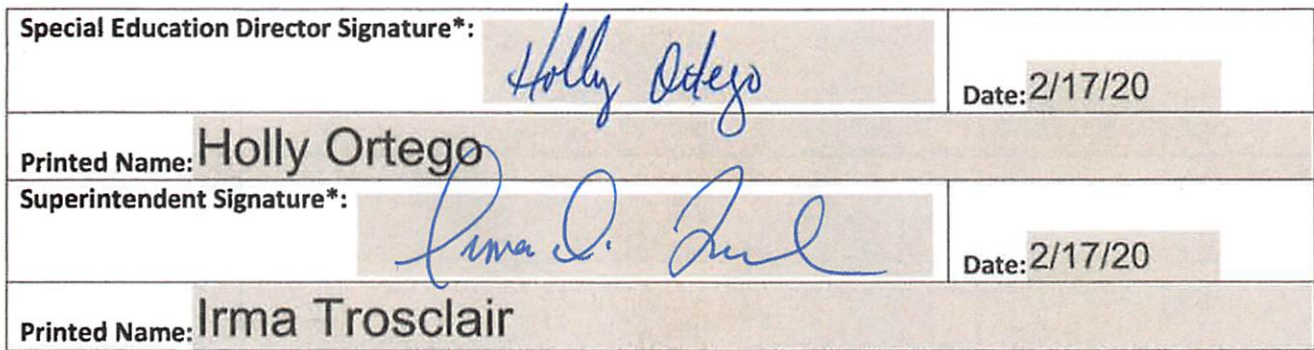 Special Education Director Signature*: Holly Ortego
Date: 2/17/20
Printed Name: Holly Ortego
Superintendent Signature*: Irma D.
Date: 2/17/20
Printed Name: Irma Trosclair